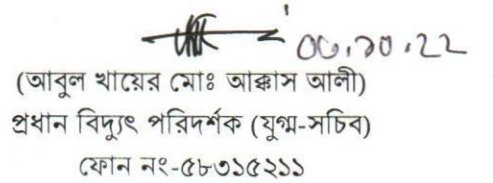 ০৩.১০.২২
(আবুল খায়ের মোঃ আক্কাস আলী)
প্রধান বিদ্যুৎ পরিদর্শক (যুগ্ম-সচিব)
ফোন নং-৫৮৩১৫২১১